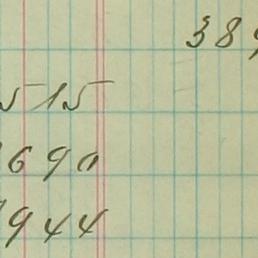 389
515
690
944